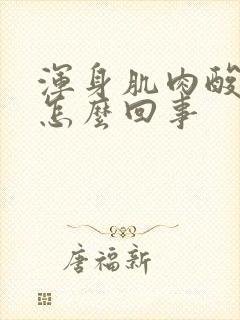 渾身肌肉酸
怎麼回事
唐福新